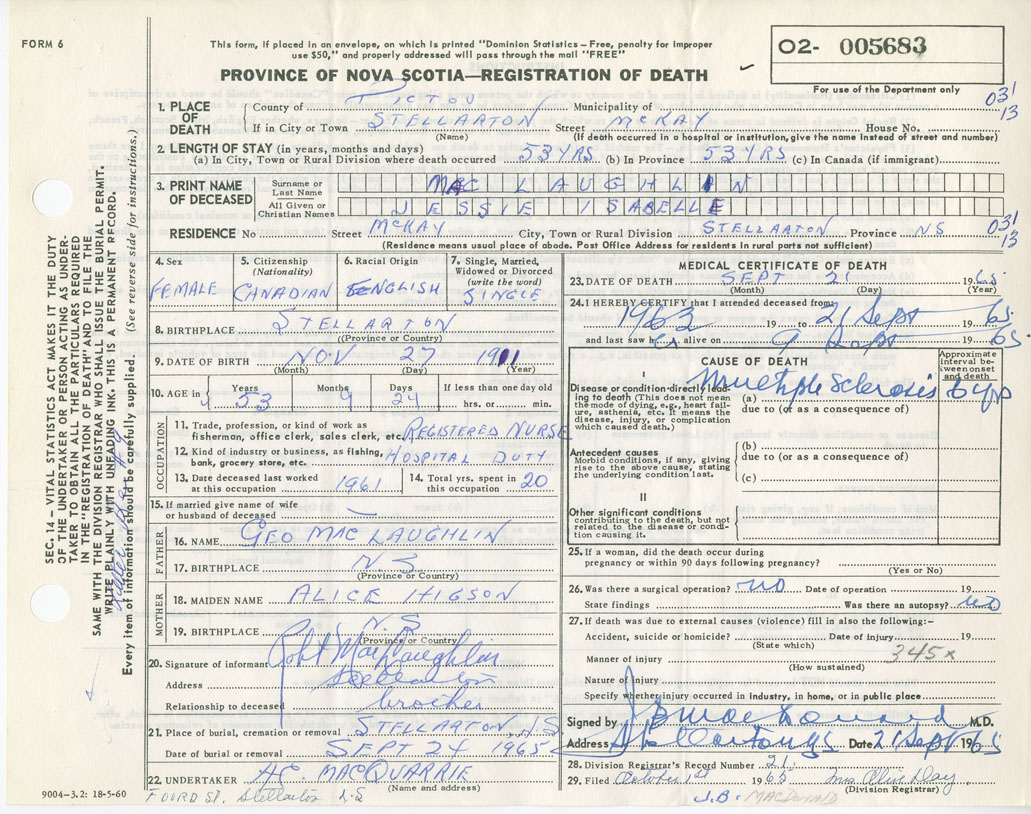 FORM 6
This form, if placed in an envelope, on which is printed "Dominion Statistics – Free, penalty for improper
use $50," and properly addressed will pass through the mail "FREE"
02- 005683
PROVINCE OF NOVA SCOTIA—REGISTRATION OF DEATH
For use of the Department only
1. PLACE OF DEATH
County of PICTOU Municipality of
If in City or Town STELLARTON Street McKAY House No.
(Name) (If death occurred in a hospital or institution, give the name instead of street and number)
031
13
2. LENGTH OF STAY (in years, months and days)
(a) In City, Town or Rural Division where death occurred 53 YRS (b) In Province 53 YRS (c) In Canada (if immigrant)
3. PRINT NAME OF DECEASED
Surname or Last Name MAC LAUGHLIN
All Given or Christian Names JESSIE ISABELLE
RESIDENCE No Street McKAY City, Town or Rural Division STELLARTON Province NS
031
13
(Residence means usual place of abode. Post Office Address for residents in rural parts not sufficient)
4. Sex
FEMALE
5. Citizenship
(Nationality)
CANADIAN
6. Racial Origin
ENGLISH
7. Single, Married,
Widowed or Divorced
(write the word)
SINGLE
8. BIRTHPLACE STELLARTON
(Province or Country)
9. DATE OF BIRTH NOV 27 1911
(Month) (Day) (Year)
10. AGE in Years 53 Months 9 Days 24 If less than one day old
hrs. or min.
OCCUPATION
11. Trade, profession, or kind of work as
fisherman, office clerk, sales clerk, etc. REGISTERED NURSE
12. Kind of industry or business, as fishing,
bank, grocery store, etc. HOSPITAL DUTY
13. Date deceased last worked
at this occupation 1961
14. Total yrs. spent in
this occupation 20
15. If married give name of wife
or husband of deceased —
FATHER
16. NAME GEO MAC LAUGHLIN
17. BIRTHPLACE N.S
(Province or Country)
MOTHER
18. MAIDEN NAME ALICE HIGSON
19. BIRTHPLACE N.S
(Province or Country)
20. Signature of informant Robt MacLaughlin
Address Stellarton
Relationship to deceased brother
21. Place of burial, cremation or removal STELLARTON N.S
Date of burial or removal SEPT 24 1965
22. UNDERTAKER A.C. MACQUARRIE
(Name and address)
FOORD St. Stellarton N.S
9004-3.2: 18-5-60
MEDICAL CERTIFICATE OF DEATH
23. DATE OF DEATH SEPT 21 1965
(Month) (Day) (Year)
24. I HEREBY CERTIFY that I attended deceased from
1963 19 to 21 Sept 1965
and last saw alive on 9 Sept 1965
CAUSE OF DEATH
Approximate
interval be-
tween onset
and death
I
Disease or condition directly lead-
ing to death (This does not mean
the mode of dying, e.g., heart fail-
ure, asthenia, etc. It means the
disease, injury, or complication
which caused death.)
(a) Multiple Sclerosis 6 yrs
due to (or as a consequence of)
Antecedent causes
Morbid conditions, if any, giving
rise to the above cause, stating
the underlying condition last.
(b)
due to (or as a consequence of)
(c)
II
Other significant conditions
contributing to the death, but not
related to the disease or condi-
tion causing it.
25. If a woman, did the death occur during
pregnancy or within 90 days following pregnancy?
(Yes or No)
26. Was there a surgical operation? no Date of operation 19
State findings Was there an autopsy? no
27. If death was due to external causes (violence) fill in also the following:–
Accident, suicide or homicide? Date of injury 19
(State which)
345x
Manner of injury
(How sustained)
Nature of injury
Specify whether injury occurred in industry, in home, or in public place
Signed by J B MacDonald M.D.
Address Stellarton NS Date 21 Sept 1965
28. Division Registrar's Record Number 21
29. Filed October 1st 1965 Mrs. Olive Day
(Division Registrar)
J.B. MACDONALD
SEC. 14 – VITAL STATISTICS ACT MAKES IT THE DUTY
OF THE UNDERTAKER OR PERSON ACTING AS UNDER-
TAKER TO OBTAIN ALL THE PARTICULARS REQUIRED
IN THE "REGISTRATION OF DEATH" AND TO FILE THE
SAME WITH THE DIVISION REGISTRAR WHO SHALL ISSUE THE BURIAL PERMIT.
WRITE PLAINLY WITH UNFADING INK. THIS IS A PERMANENT RECORD.
Every item of information should be carefully supplied. (See reverse side for instructions.)